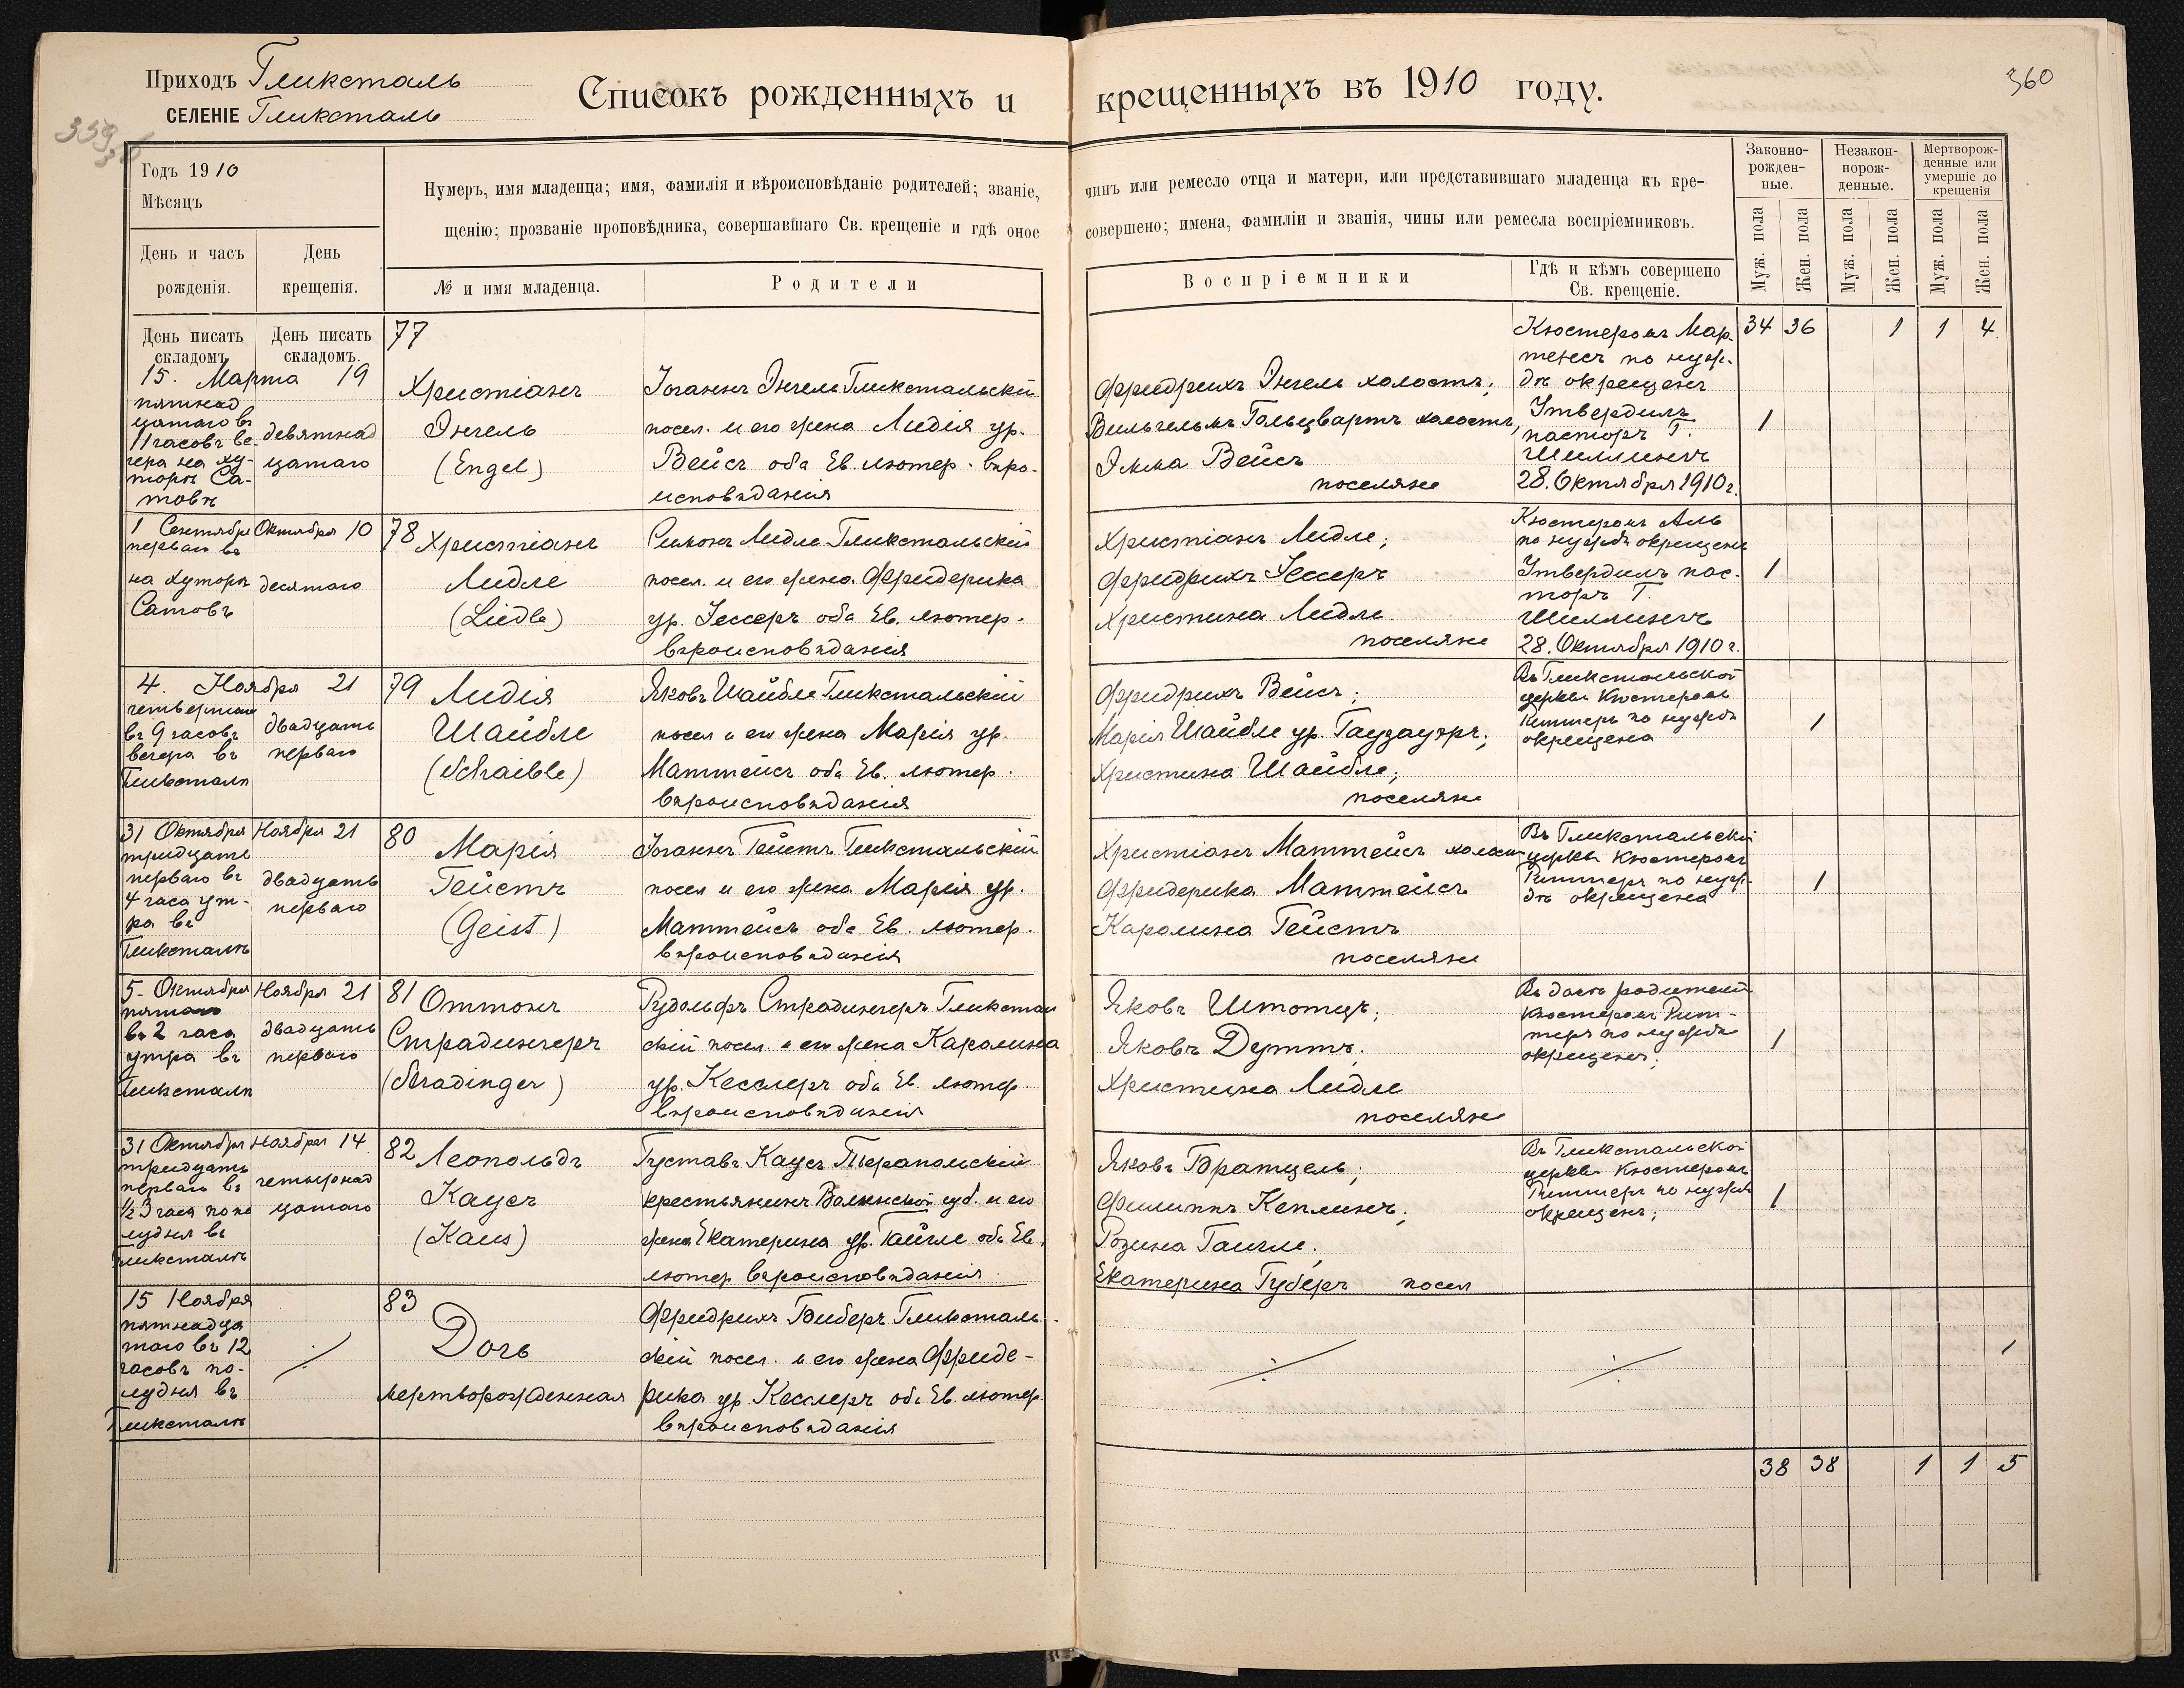 Приходъ Гликсталь
СЕЛЕНІЕ Гликсталь
Списокъ рожденныхъ и крещенныхъ въ 1910 году.
360
359
Годъ 1910
Мѣсяцъ
Нумеръ, имя младенца; имя, фамилія и вѣроисповѣданіе родителей; званіе, чинъ или ремесло отца и матери, или представившаго младенца къ кре-
щенію; прозваніе проповѣдника, совершавшаго Св. крещеніе и гдѣ оное совершено; имена, фамиліи и званія, чины или ремесла воспріемниковъ.
Законно-
рожден-
ные.
Незакон-
норож-
денные.
Мертворож-
денные или
умершіе до
крещенія
Муж. пола
Жен. пола
Муж. пола
Жен. пола
Муж. пола
Жен. пола
День и часъ
рожденія.
День
крещенія.
№ и имя младенца.
Родители
Воспріемники
Гдѣ и кѣмъ совершено
Св. крещеніе.
День писать
складомъ.
День писать
складомъ.
15. Марта 19
пятнад
цатаго въ
11 часовъ ве-
чера на ху-
торѣ Са-
товѣ
девятнад
цатаго
77
Христіанъ
Энгель
(Engel)
Іоганнъ Энгель Гликстальскій
посел. и его жена Лидія ур.
Вейсъ оба Ев. лютер. вѣро-
исповѣданія
Фридрихъ Энгель холостъ;
Вильгельмъ Гольцвартъ холостъ,
Эмма Вейсъ
поселяне
Кюстеромъ Мар-
тенсъ по нуж-
дѣ окрещенъ
Утвердилъ
пасторъ Г.
Шиллингъ
28. Октября 1910 г.
34 36 1 1 4.
1
1 Сентября
перваго въ
на хуторѣ
Сатовъ
Октября 10
десятаго
78 Христіанъ
Лидле
(Liedle)
Симонъ Лидле Гликстальскій
посел. и его жена Фридерика
ур. Гессеръ оба Ев. лютер.
вѣроисповѣданія
Христіанъ Лидле;
Фридрихъ Гессеръ
Христина Лидле.
поселяне
Кюстеромъ Аль
по нуждѣ окрещенъ
Утвердилъ пас-
торъ Г.
Шиллингъ
28. Октября 1910 г.
1
4. Ноября 21
четвертаго
въ 9 часовъ
вечера въ
Гликсталѣ
двадцать
перваго
79 Лидія
Шайбле
(Schaible)
Яковъ Шайбле Гликстальскій
посел и его жена Марія ур.
Маттейсъ оба Ев. лютер.
вѣроисповѣданія
Фридрихъ Вейсъ;
Марія Шайбле ур. Гаузауэръ;
Христина Шайбле;
поселяне
Въ Гликстальской
церкви Кюстеромъ
Риттеръ по нуждѣ
окрещена
1
31 Октября
тридцать
перваго въ
4 часа ут-
ра въ
Гликсталѣ
Ноября 21
двадцать
перваго
80 Марія
Гейстъ
(Geist)
Іоганнъ Гейстъ Гликстальскій
посел и его жена Марія ур.
Маттейсъ оба Ев. лютер.
вѣроисповѣданія
Христіанъ Маттейсъ холост
Фридерика Маттейсъ
Каролина Гейстъ
поселяне
Въ Гликстальской
церкви Кюстеромъ
Риттеръ по нуж-
дѣ окрещена
1
5. Октября
пятаго
въ 2 часа
утра въ
Гликсталѣ
Ноября 21
двадцать
перваго
81 Оттонъ
Страдингеръ
(Stradinger)
Рудольфъ Страдингеръ Гликсталь
скій посел. и его жена Каролина
ур. Кесслеръ оба Ев. лютер.
вѣроисповѣданія
Яковъ Штотцъ;
Яковъ Дуттъ;
Христина Лидле
поселяне
Въ домѣ родителей
Кюстеромъ Рит-
теръ по нуждѣ
окрещенъ;
1
31 Октября
тридцать
перваго въ
½ 3 часа попо
лудня въ
Гликсталѣ
Ноября 14.
четырнад
цатаго
82 Леопольдъ
Каусъ
(Kaus)
Густавъ Каусъ
крестьянинъ Волынской губ. и его
жена Екатерина ур. Гайгле оба Ев.
лютер вѣроисповѣданія
Яковъ Братцель;
Филиппъ Кеплинъ;
Розина Гайгле;
Екатерина Губеръ посел
Въ Гликстальской
церкви Кюстеромъ
Риттеръ по нуждѣ
окрещенъ;
1
15 Ноября
пятнадца
таго въ 12
часовъ по-
лудня въ
Гликсталѣ
83
Дочь
мертворожденная
Фридрихъ Биберъ Гликсталь
скій посел. и его жена Фриде-
рика ур Кесслеръ оба Ев. лютер.
вѣроисповѣданія
1
38 38 1 1 5